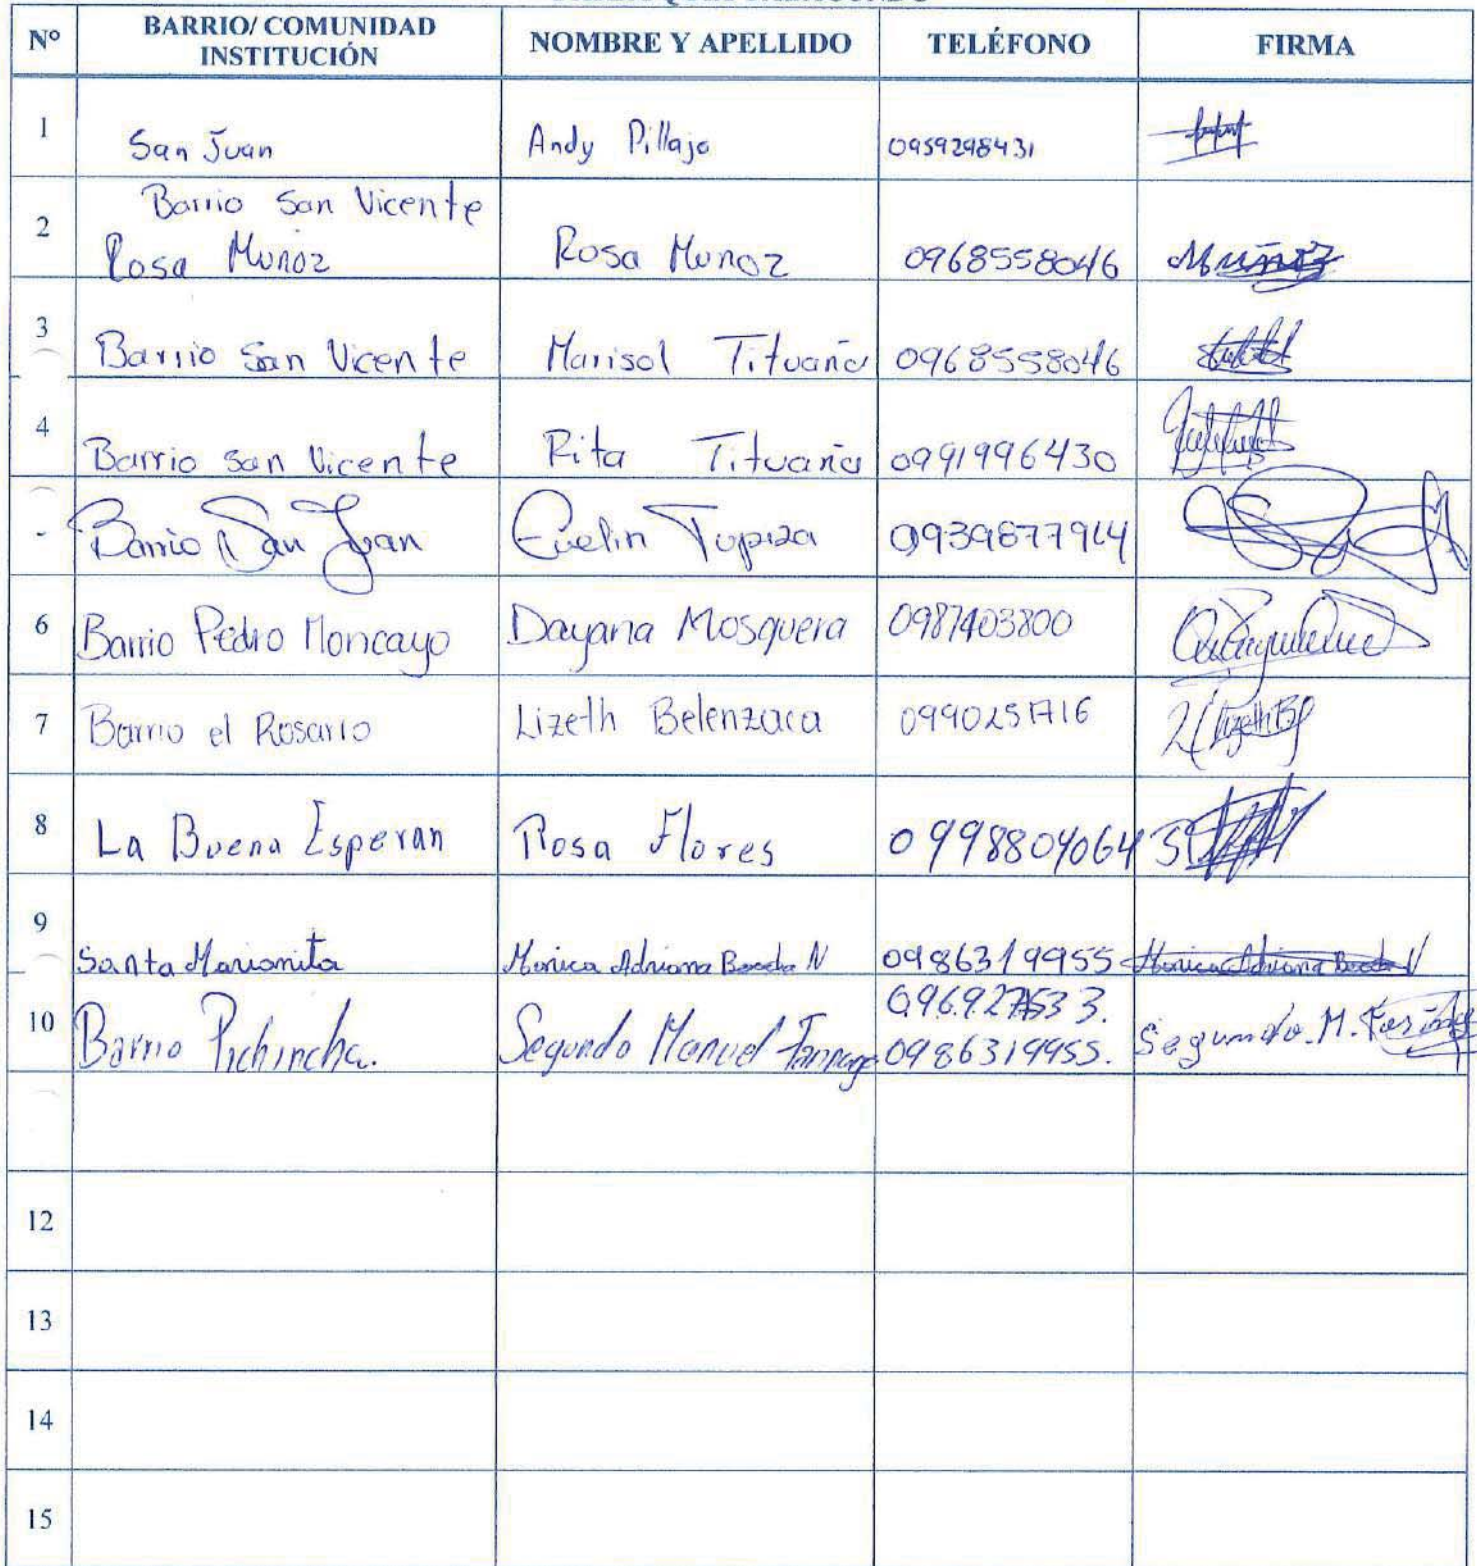 Nº BARRIO/ COMUNIDAD INSTITUCIÓN NOMBRE Y APELLIDO TELÉFONO FIRMA
1 San Juan Andy Pillajo 0959298431
2 Barrio San Vicente
Rosa Munoz Rosa Munoz 0968558046 Muñoz
3 Barrio San Vicente Marisol Tituaña 0968558046
4 Barrio San Vicente Rita Tituaña 0991996430
Barrio San Juan Evelin Tupiza 0939877914
6 Barrio Pedro Moncayo Dayana Mosquera 0987403800
7 Barrio el Rosario Lizeth Belenzaca 0990251716
8 La Buena Esperan Rosa Flores 0998804064
9 Santa Marianita Monica Adriana N 0986319955 Monica Adriana
10 Barrio Pichincha. Segundo Manuel 0986319955. Segundo. M.
12
13
14
15